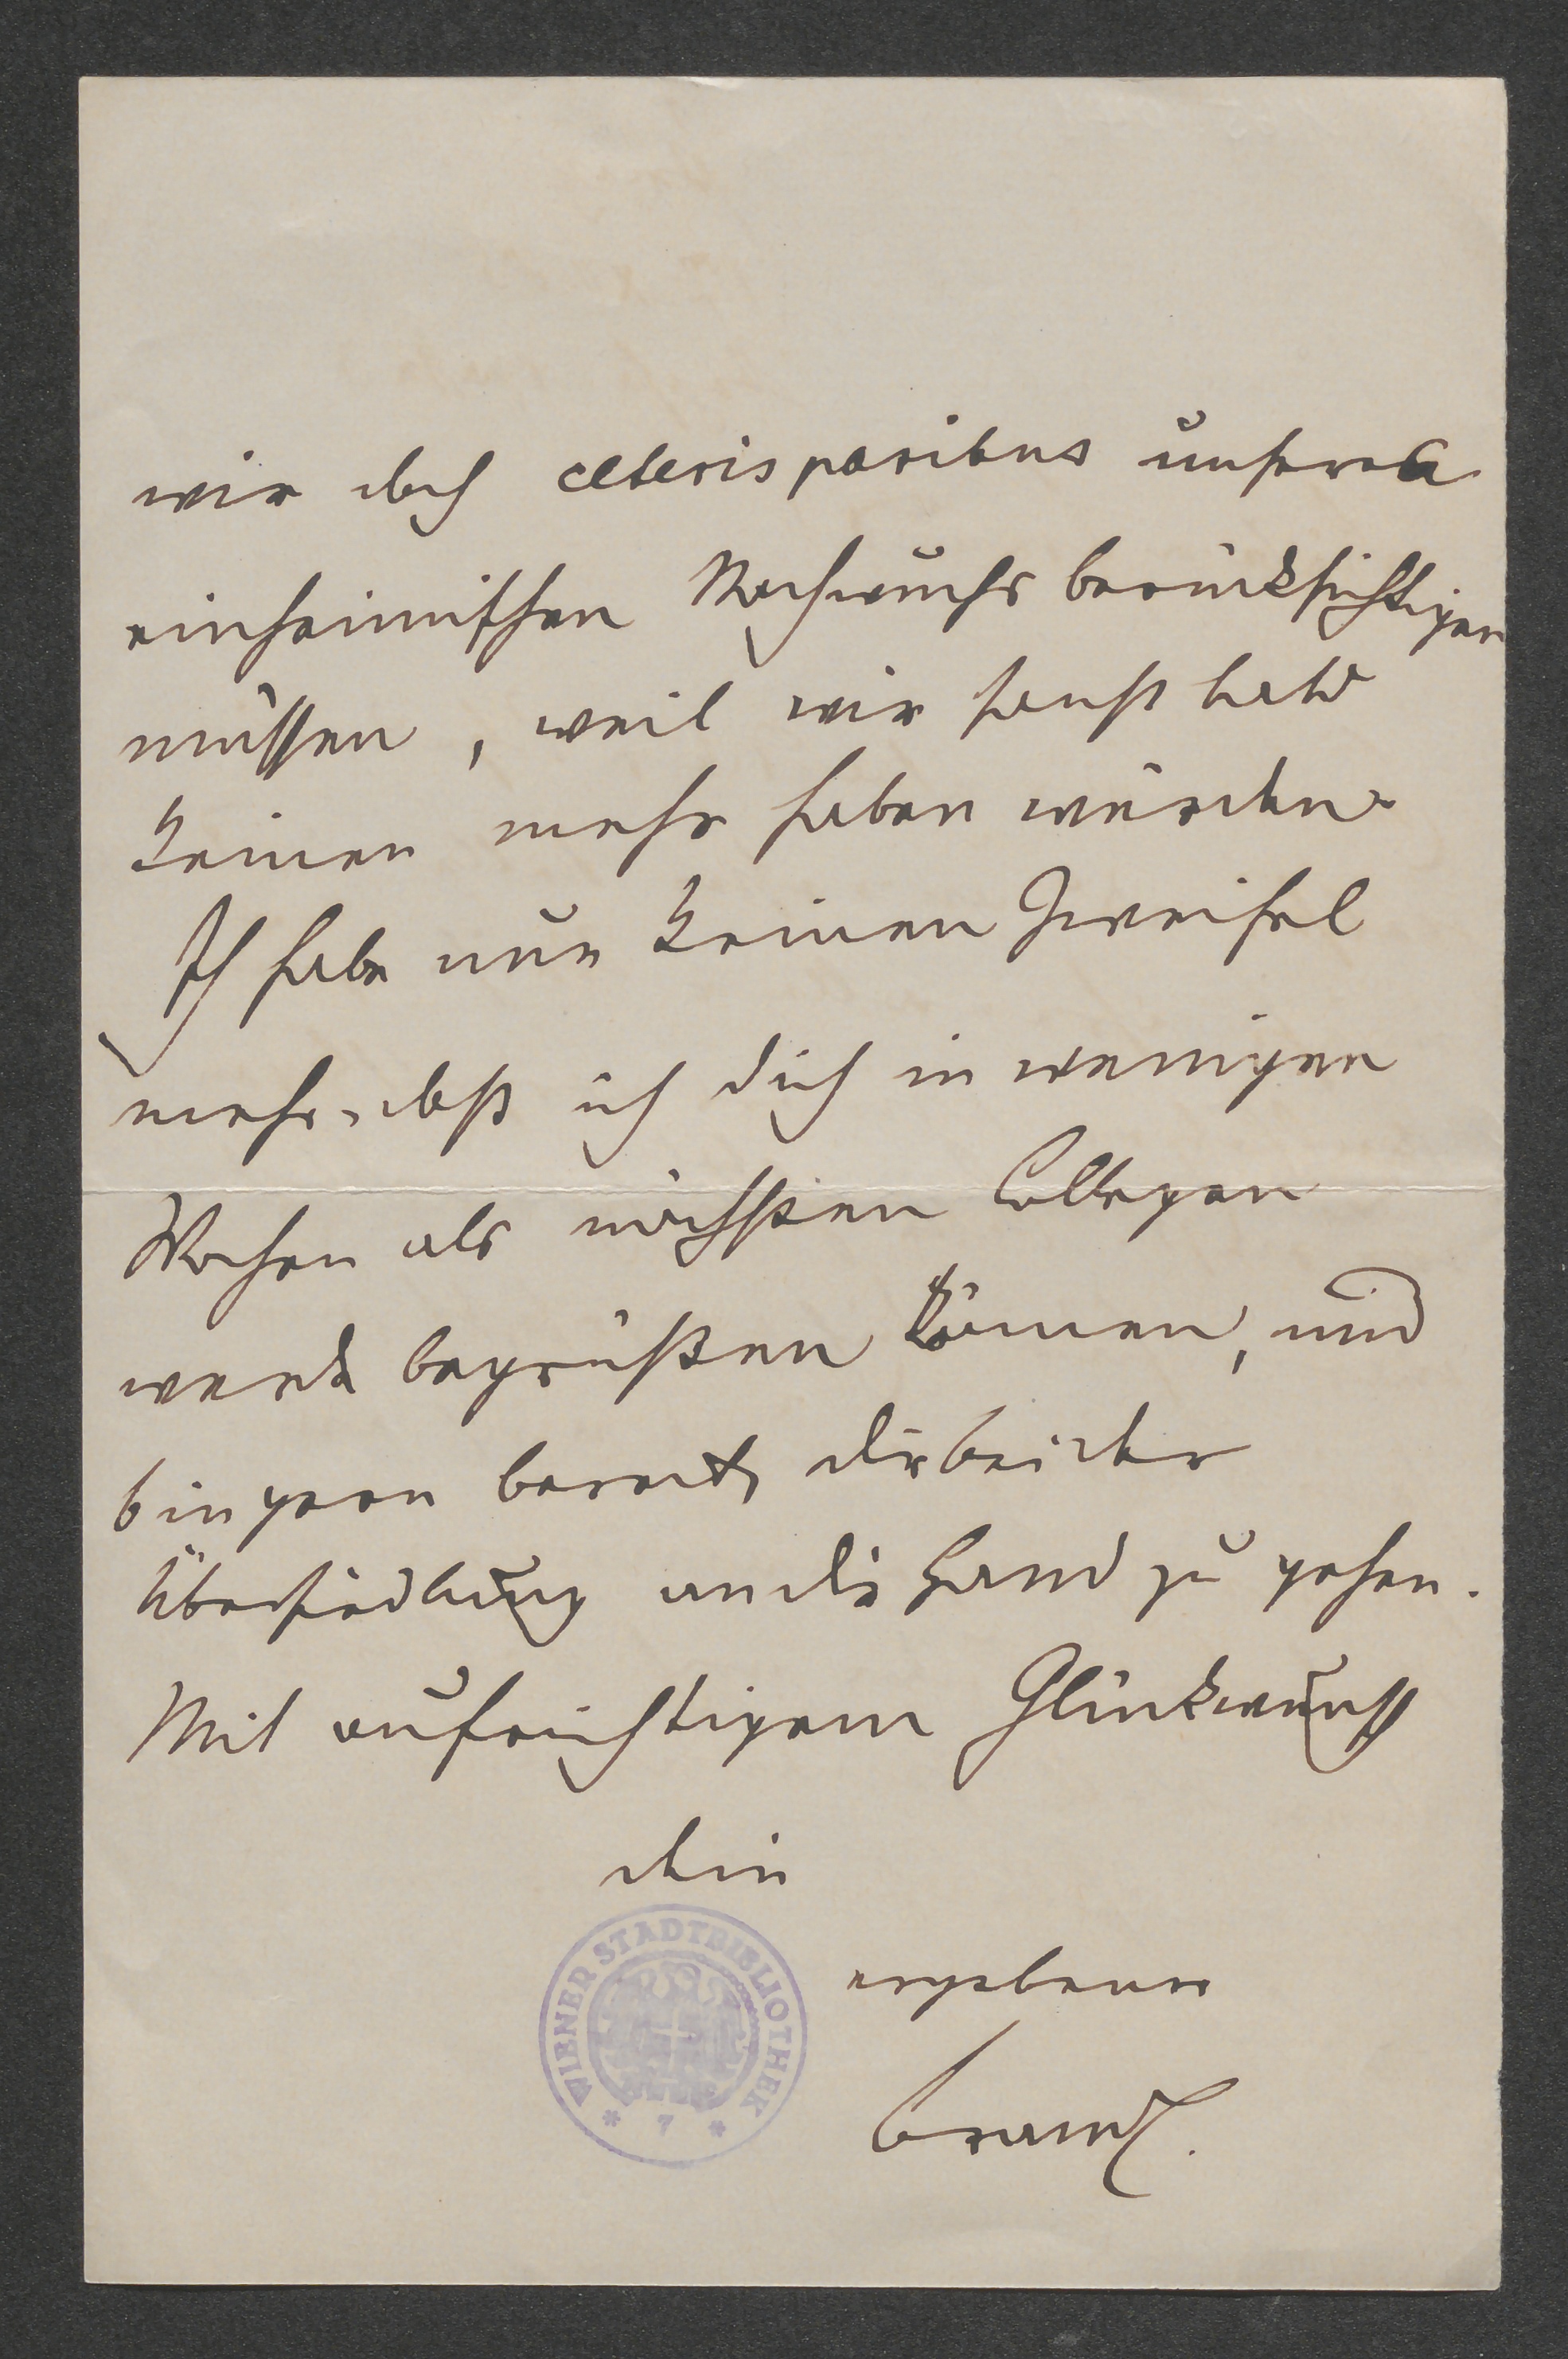 wir doch ceteris paribus unseren
einheimischen Nachwuchs berücksichtigen
müssen, weil wir sonst bald
keinen mehr haben würden.
Ich habe nun keinen Zweifel
mehr, daß ich dich in wenigen
Wochen als nächsten Collegen
werde begrüßen können, und
bin gern bereit, dir bei der
Übersiedlung an die Hand zu gehen.
Mit aufrichtigem Glückwunsch
dein
ergebener
Brandl.
WIENER STADTBIBLIOTHEK
* 7 *